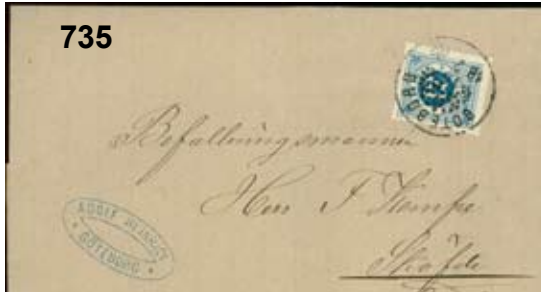 735
GÖTEBORG
Befallningsmannen
Herr F Kempe
Sköfde
ADOLF
GÖTEBORG